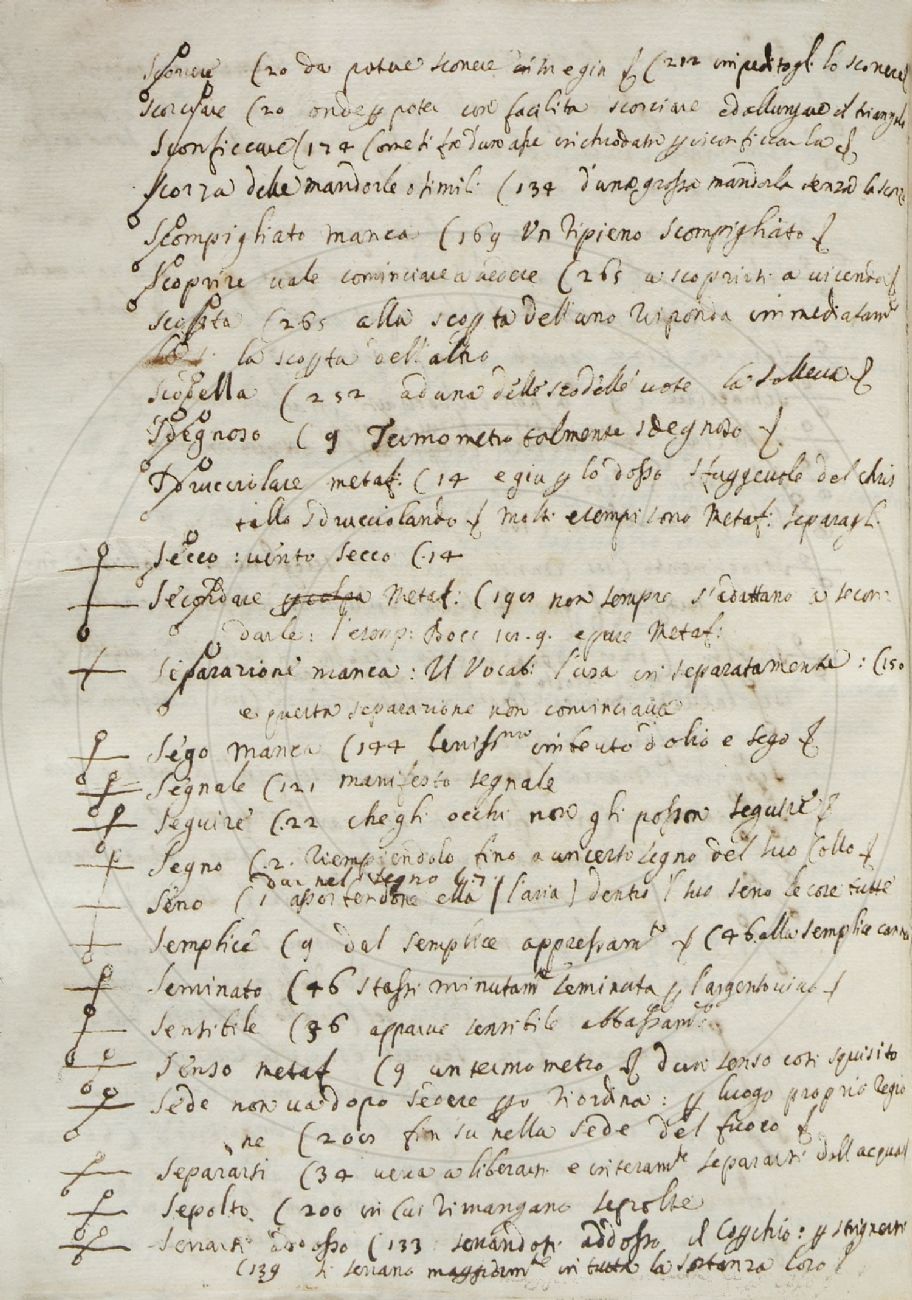 Scorrere (20 da potere scorrere (212 impeditogli lo scorrere
Scorciare (20 onde p poter con facilità scorciare ed allungare il triangolo
Sconficcare (174 Come si fa
Scorza delle mandorle o simili (134 d'una grossa mandorla senza la scorza
Scompigliato manca (169 Un ripieno scompigliato
Scoprire vale cominciare a vedere (265 a scoprirsi a vicenda
Scopta (265 alla scopta dell'uno risponda immediatamte
la scopta dell'altro
Scodella (252 ad una delle scodelle vote la solleva
Sdegnoso (9 Termometro talmente sdegnoso
Sdrucciolare metaf: (14 e giu p lo dosso sfuggevole del chris
tallo sdrucciolando molti esempi sono Metaf: separagli
Secco: vento secco (14
Secondare Metaf: (198 non sempre s'adattano a secon
darle: l'esemp: Bocc e pure Metaf:
Separazione manca: Il Vocab: l'usa in separatamente: (150
e questa separazione non cominciava
Sego manca (144 d'olio e sego
Segnale (121 manifesto segnale
Seguire (22 che gli occhi non gli posson seguire
Segno (2. Riempiendolo fino a un certo segno del suo Collo
dui nel segno
Seno (1 ella (l'aria) dentro l suo seno le cose tutte
Semplice (9 dal semplice appressamto (46 alla semplice canna
Seminato (46 stassi minutamte seminata p l'argentovivo
Sensibile (36 apparve sensibile abbassamto
Senso metaf (9 un termometro d'un senso così squisito
Sede non va dopo sedere riordina: p luogo proprio Regio
ne (208 fin su nella sede del fuoco
Separarsi (34 a liberarsi e interamte separarsi dall acqua
Sepolto (200 in cui rimangano sepolte
Serrarsi addosso (133 serrandosi addosso il Copchio: p strignersi
(139 si serrano in tutta la sostanza loro